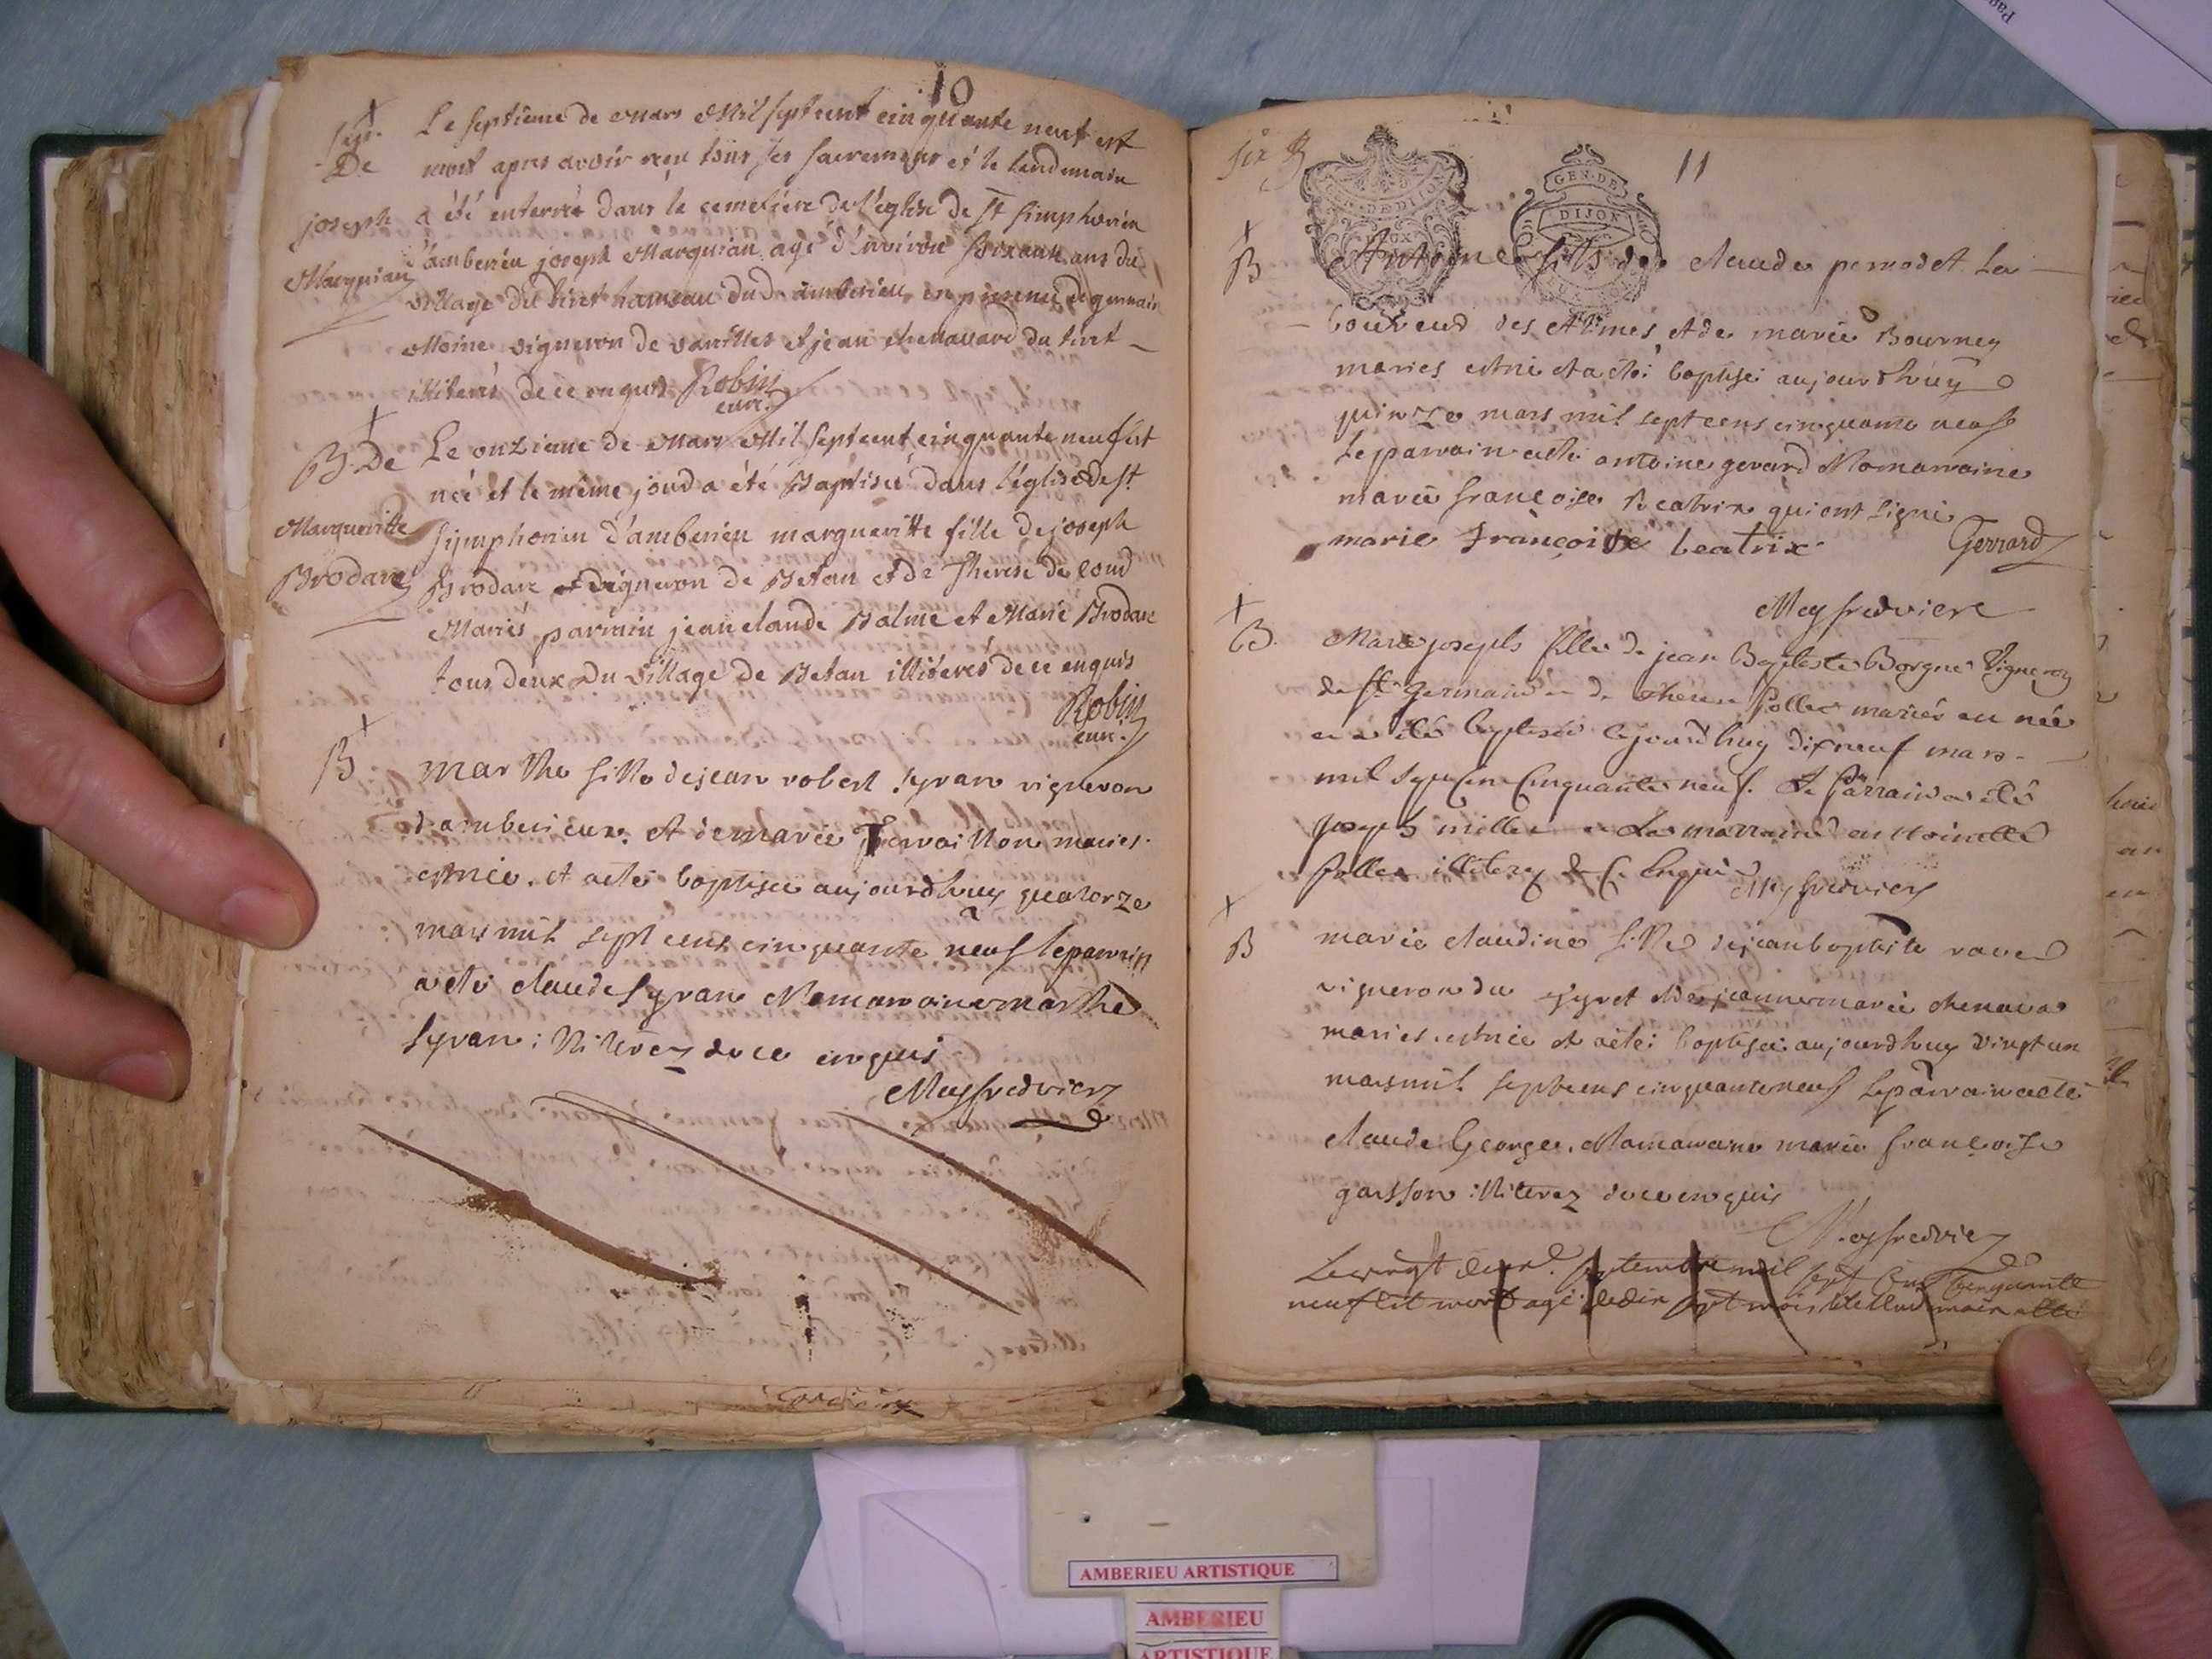 10
Sep.
De
joseph
Marquian
Le septième de Mars Mil sept cent cinquante neuf est
mort apres avoir reçu tous ses sacremens et le lendemain
a été enterré dans le cemetiere de l'eglise de St simphorien
d'amberieu joseph Marquian agé d'environ soixante ans du
village du tiret hameau dud. amberieu, en presence de germain
Moine vigneron de vareilles et jean chenavard du tiret
illiterés de ce enquis Robin
curé
B. De
Marguerite
Brodare
Le onzieme de Mars Mil sept cent cinquante neuf est
née et le même jour a été Baptisée dans l'église de St
Simphorien d'amberieu marguerite fille de joseph
Brodare vigneron de Betan et de Therese de
Mariés, parrain jean claude Balme et Marie Brodare
tous deux Du village de Betan illiterés de ce enquis
Robin
curé
B
marthe fille de jean robert syran vigneron
d'amberieux et de marie maries
est née et a eté baptisée aujourdhuy quatorze
mars mil sept cens cinquante neuf le parrain
a eté claude syran et la maraine marthe
syran illiterez de ce enquis
Meyfredvier
11
GEN. DE
DIJON
B
Antoine fils de claude pernodet la
boureur des Alimes et de marie Bourney
maries est né et a eté baptisé aujourdhuy
quinze mars mil sept cens cinquante neuf
le parrain a eté antoine gerard et la maraine
marie françoise beatrix qui ont signé
marie françoise beatrix Gerrard
Meyfredviere
B.
Marie joseph fille de jean Baptiste Borgne Vigneron
de St germain et de therese follet mariés est née
et a été baptisée aujourdhuy dixneuf mars
mil sept cens cinquante neuf. Le parrain a été
joseph millet et la marraine antoinette
follet illiterez de ce enquis
Meyfredvier
B
marie claudine fille de jean baptiste ravet
vigneron du tyret et de jeanne marie chenavas
maries est née et a eté baptisée aujourdhuy vingt un
mars mil sept cens cinquante neuf le parrain a eté
claude George et la maraine marie françoise
garsson illiterez de ce enquis
Meyfredvier
Le vingt deux septembre mil sept cent cinquante
neuf est mort agé de dix sept mois et le lendemain
AMBERIEU ARTISTIQUE
AMBERIEU
ARTISTIQUE